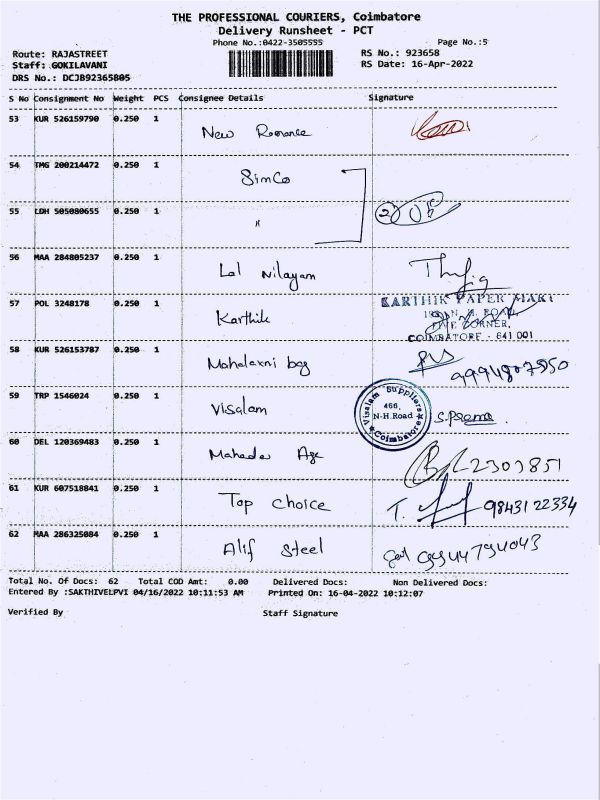 THE PROFESSIONAL COURIERS, Coimbatore
Delivery Runsheet - PCT
Phone No.:0422-3505555 Page No.:5
Route: RAJASTREET RS No.: 923658
Staff: GOKILAVANI RS Date: 16-Apr-2022
DRS No.: DCJB92365805
S No Consignment No Weight PCS Consignee Details Signature
53 KUR 526159790 0.250 1 New Romance
54 TMG 200214472 0.250 1 SimCo
55 LDH 505080655 0.250 1 "
56 MAA 284805237 0.250 1 Lal Nilayam
57 POL 3248178 0.250 1 Karthik
KARTHIK PAPER MART
CORNER,
COIMBATORE - 641 001
58 KUR 526153787 0.250 1 Mahalaxmi bag
59 TRP 1546024 0.250 1 Visalam S.Prema
Visalam Suppliers
466,
N-H.Road
Coimbatore
60 DEL 120369483 0.250 1 Mahadev Age 2303851
61 KUR 607518841 0.250 1 Top Choice T. 9843122334
62 MAA 286325084 0.250 1 Alif Steel
Total No. Of Docs: 62 Total COD Amt: 0.00 Delivered Docs: Non Delivered Docs:
Entered By :SAKTHIVELPVI 04/16/2022 10:11:53 AM Printed On: 16-04-2022 10:12:07
Verified By Staff Signature